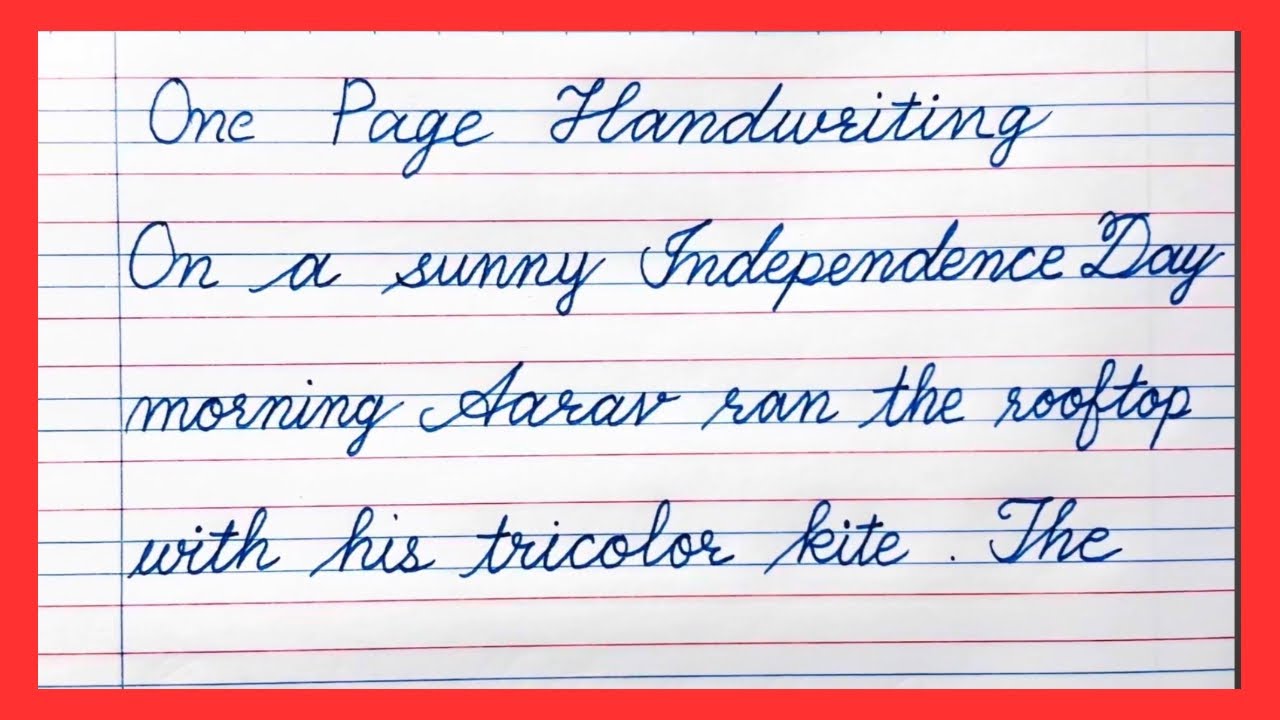 One Page Handwriting
On a sunny Independence Day
morning Aarav ran the rooftop
with his tricolor kite . The